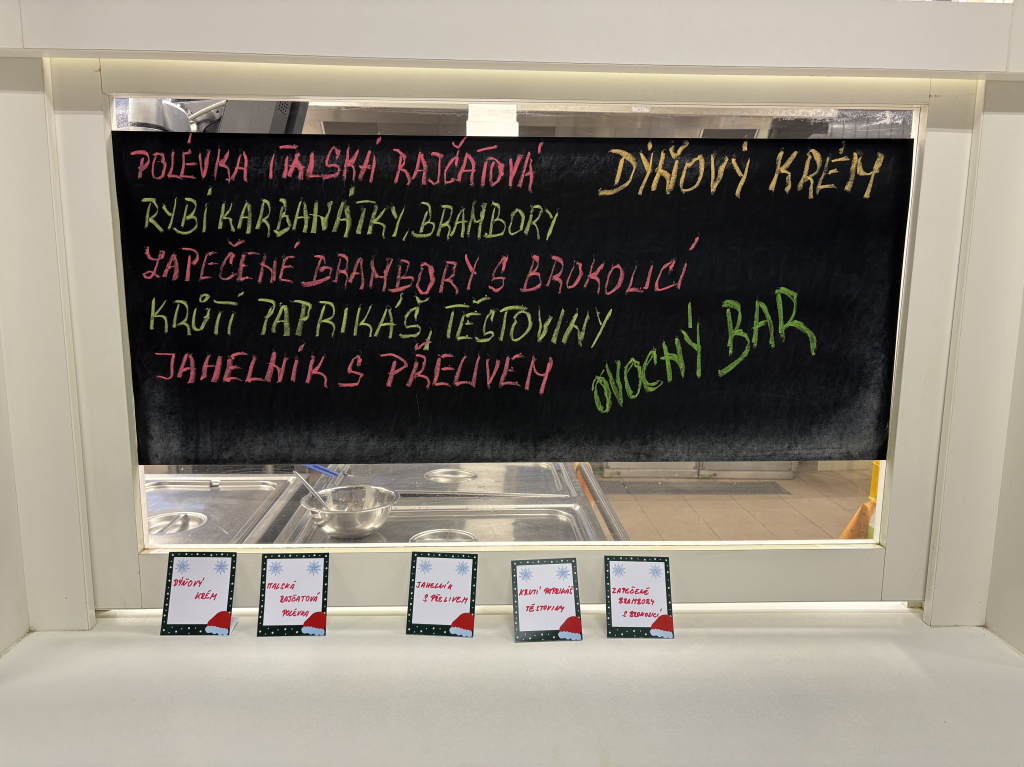 POLÉVKA ITALSKÁ RAJČATOVÁ
DÝŇOVÝ KRÉM
RYBÍ KARBANÁTKY, BRAMBORY
ZAPEČENÉ BRAMBORY S BROKOLICÍ
KRŮTÍ PAPRIKÁŠ, TĚSTOVINY
JAHELNÍK S PŘELIVEM
OVOCNÝ BAR
DÝŇOVÝ
KRÉM
ITALSKÁ
RAJČATOVÁ
POLÉVKA
JAHELNÍK
S PŘELIVEM
KRUTÍ PAPRIKÁŠ
TĚSTOVINY
ZAPEČENÉ
BRAMBORY
S BROKOLICÍ